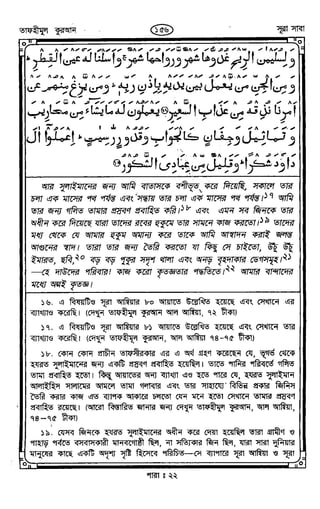 তাফহীমুল কুরআন ১৫৬ সূরা সাবা
وَلِسُلَيْمٰنَ الرِّيْحَ غُدُوُّهَا شَهْرٌ وَّرَوَاحُهَا شَهْرٌ ۚ وَاَسَلْنَا لَهٗ عَيْنَ الْقِطْرِ ؕ
وَمِنَ الْجِنِّ مَنْ يَّعْمَلُ بَيْنَ يَدَيْهِ بِاِذْنِ رَبِّهٖ ؕ وَمَنْ يَّزِغْ مِنْهُمْ عَنْ
اَمْرِنَا نُذِقْهُ مِنْ عَذَابِ السَّعِيْرِ ﴿۱۲﴾ يَعْمَلُوْنَ لَهٗ مَا يَشَآءُ مِنْ مَّحَارِيْبَ
وَتَمَاثِيْلَ وَجِفَانٍ كَالْجَوَابِ وَقُدُوْرٍ رّٰسِيٰتٍ ؕ اِعْمَلُوْۤا اٰلَ
دَاوٗدَ شُكْرًا ؕ وَقَلِيْلٌ مِّنْ عِبَادِيَ الشَّكُوْرُ ﴿۱۳﴾
আর সুলাইমানের জন্য আমি বাতাসকে বশীভূত করে দিয়েছি, সকালে তার
চলা এক মাসের পথ পর্যন্ত এবং সন্ধ্যায় তার চলা এক মাসের পথ পর্যন্ত।১৭ আমি
তার জন্য গলিত তামার প্রস্রবণ প্রবাহিত করি।১৮ এবং এমন সব জিনকে তার
অধীন করে দিয়েছে যারা তাদের রবের হুকুমে তার সামনে কাজ করতো।১৯ তাদের
মধ্য থেকে যে আমার হুকুম অমান্য করে তাকে আমি আস্বাদন করাই জ্বলন্ত
আগুনের স্বাদ। তারা তার জন্য তৈরি করতো যা কিছু সে চাইতো, উঁচু উঁচু
ইমারত, ছবি,২০ বড় বড় পুকুর সদৃশ থালা এবং অনড় বৃহদাকার ডেগসমূহ।২১
—হে দাউদের পরিবার! কাজ করো কৃতজ্ঞতার পদ্ধতিতে।২২ আমার বান্দাদের
মধ্যে অল্পই কৃতজ্ঞ।
১৬. এ বিষয়টিও সূরা আম্বিয়ার ৮০ আয়াতে উল্লেখিত হয়েছে এবং সেখানে এর
ব্যাখ্যাও করেছি। (দেখুন তাফহীমুল কুরআন আল আম্বিয়া, ৭২ টীকা)
১৭. এ বিষয়টিও সূরা আম্বিয়ার ৮১ আয়াতে উল্লেখিত হয়েছে এবং সেখানে তার
ব্যাখ্যাও করেছি। (দেখুন তাফহীমুল কুরআন, আল আম্বিয়া, ৭৪-৭৫ টীকা)
১৮. কোন কোন প্রাচীন তাফসীরকার এর এ অর্থ গ্রহণ করেছেন যে, ভূগর্ভ থেকে
হযরত সুলাইমানের জন্য একটি প্রস্রবণ প্রবাহিত হয়েছিল। তাতে পানির পরিবর্তে গলিত
তামা প্রবাহিত হতো। কিন্তু আয়াতের অন্য ব্যাখ্যা এও হতে পারে যে, হযরত সুলাইমান
আলাইহিস সালামের আমলে তামা গলাবার এবং তার সাহায্যে বিভিন্ন প্রকার জিনিস
তৈরি করার কাজ এত ব্যাপক আকারে চলতো যেন মনে হতো সেখানে তামার প্রস্রবণ
প্রবাহিত রয়েছে। (আরো বিস্তারিত জানার জন্য দেখুন তাফহীমুল কুরআন, আল আম্বিয়া,
৭৪-৭৫ টীকা)
১৯. যেসব জিনকে হযরত সুলাইমানের অধীন করে দেয়া হয়েছিল তারা গ্রামীণ ও
পাহাড় পর্বতে বসবাসকারী মানবগোষ্ঠী ছিল, না সত্যিকার জিন ছিল, যারা সারা দুনিয়ার
মানুষের কাছে একটি অদৃশ্য সৃষ্টি হিসেবে পরিচিত—সে ব্যাপারে সূরা আম্বিয়া ও সূরা
পারা : ২২